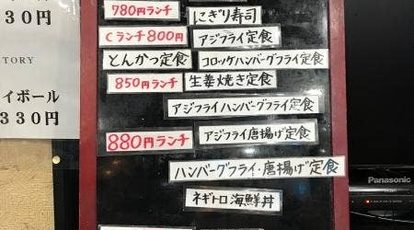 30円
TORY
イボール
330円
780円ランチ
にぎり寿司
Cランチ800円
アジフライ定食
とんかつ定食
コロッケハンバーグフライ定食
850円ランチ
生姜焼き定食
アジフライハンバーグフライ定食
880円ランチ
アジフライ唐揚げ定食
ハンバーグフライ・唐揚げ定食
ネギトロ海鮮丼
Panasonic